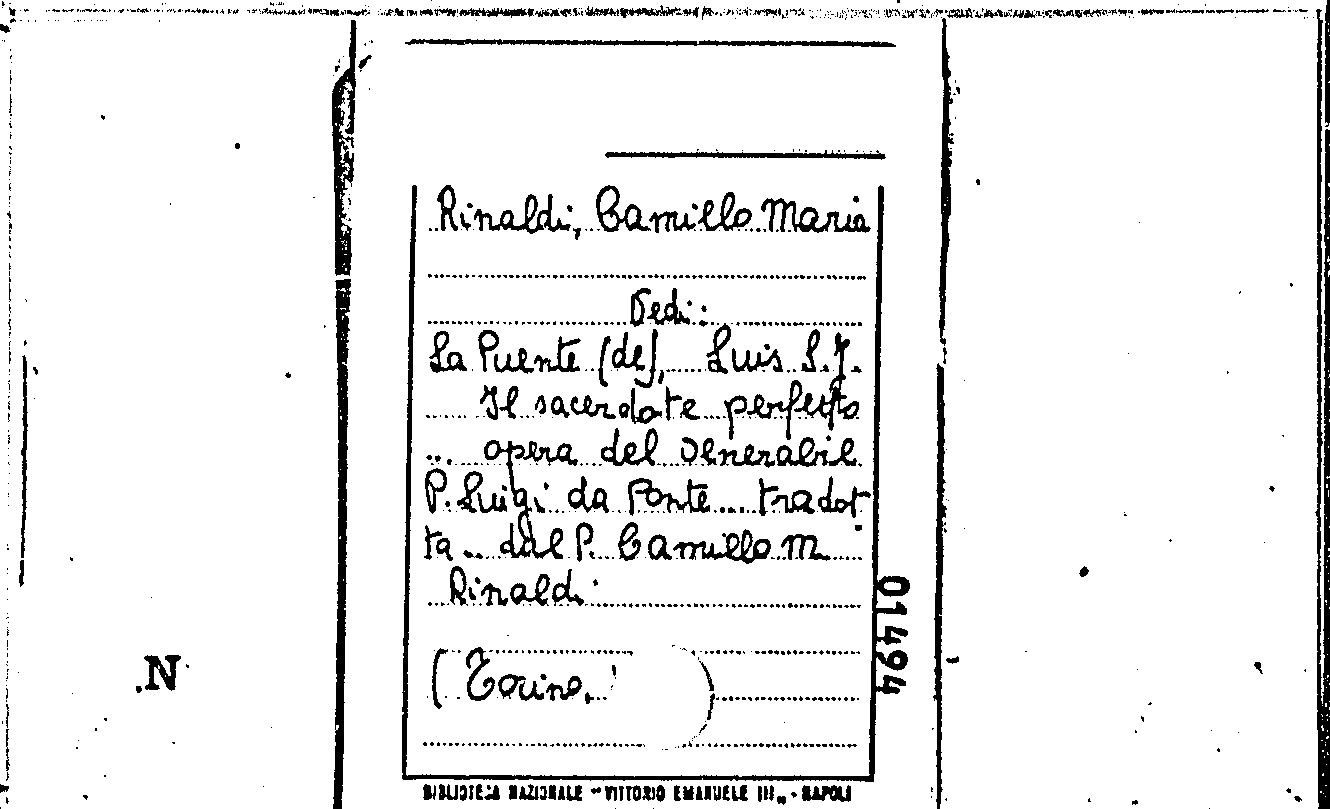 Rinaldi, Camillo Maria
Vedi:
La Puente (de), Luis S.J.
Il sacerdote perfetto
... opera del venerabil
P. Luigi da Ponte ... tradot
ta ... dal P. Camillo M.
Rinaldi
(Torino,
01494
.N
BIBLIOTECA NAZIONALE "VITTORIO EMANUELE III" - NAPOLI